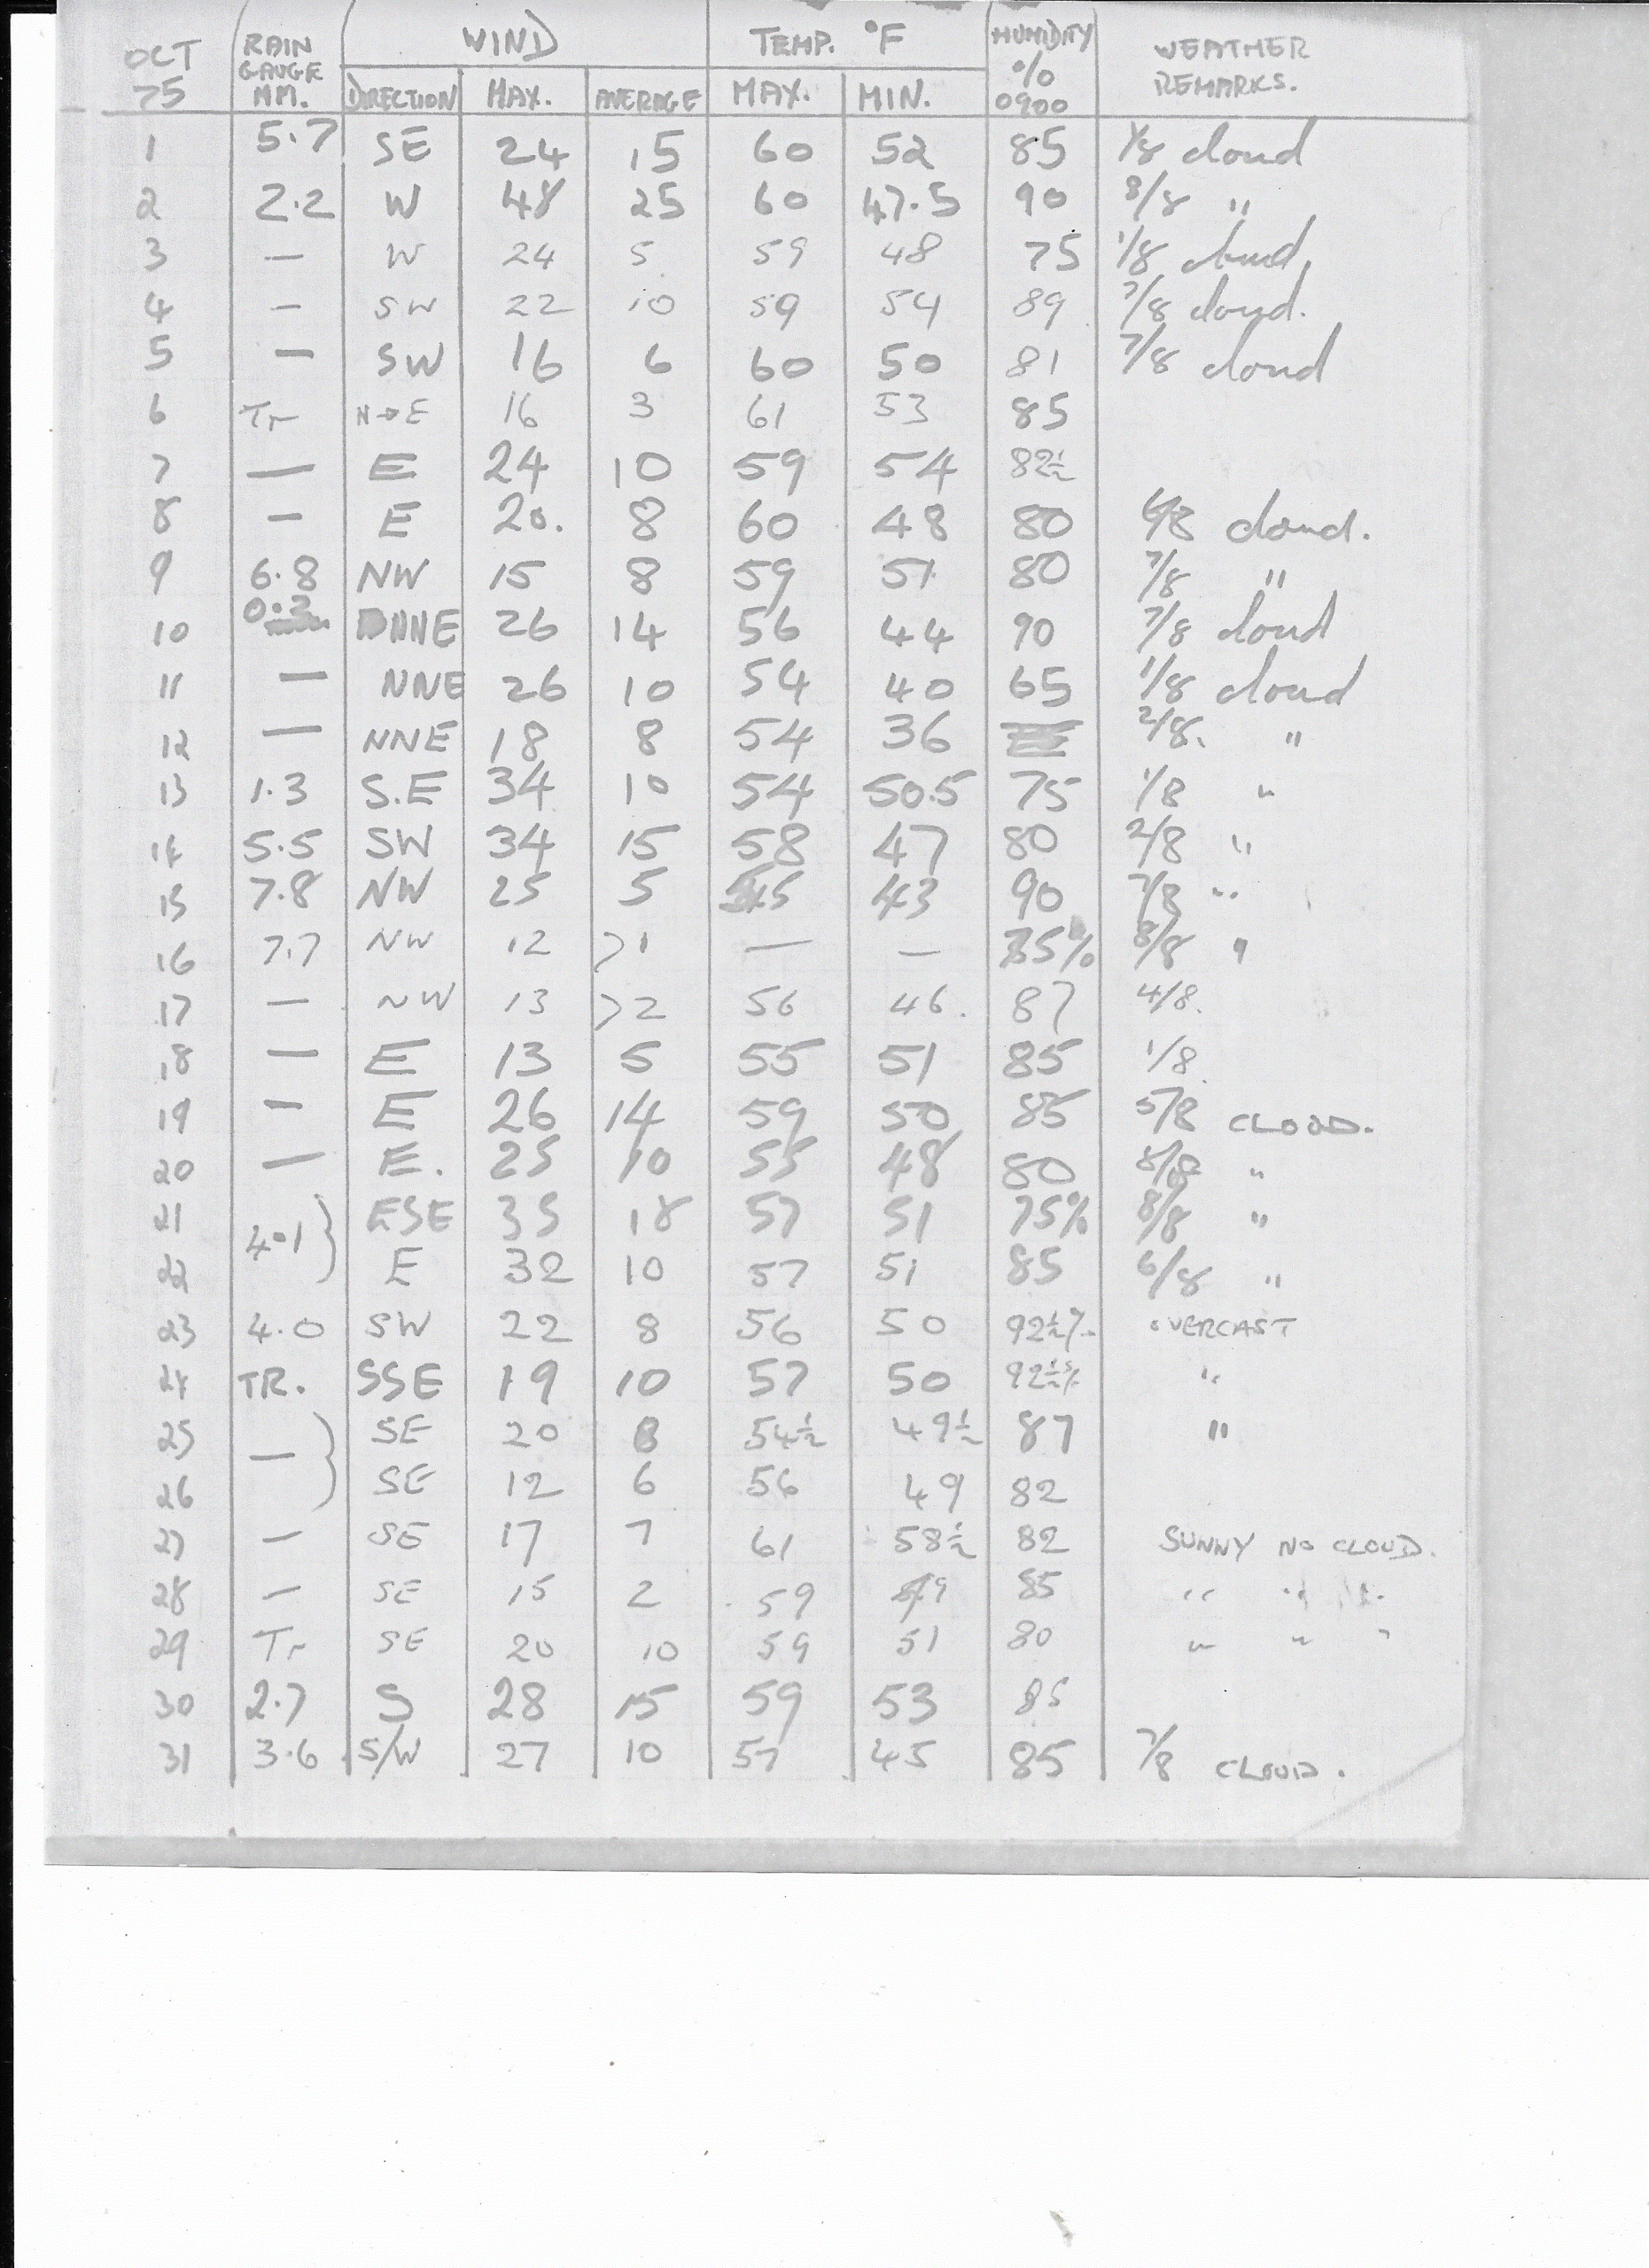 OCT 75 RAIN GAUGE MM. WIND TEMP. °F HUMIDITY % 0900 WEATHER REMARKS.
DIRECTION MAX. AVERAGE MAX. MIN.
1 5.7 SE 24 15 60 52 85 1/8 cloud
2 2.2 W 48 25 60 47.5 90 8/8 "
3 — W 24 5 59 48 75 1/8 cloud
4 — SW 22 10 59 54 89 7/8 cloud.
5 — SW 16 6 60 50 81 7/8 cloud
6 Tr N→E 16 3 61 53 85
7 — E 24 10 59 54 82½
8 — E 20. 8 60 48 80 /8 cloud.
9 6.8 NW 15 8 59 51 80 7/8 "
10 0.2 NNE 26 14 56 44 90 7/8 cloud
11 — NNE 26 10 54 40 65 1/8 cloud
12 — NNE 18 8 54 36 2/8. "
13 1.3 S.E 34 10 54 50.5 75 1/8 "
14 5.5 SW 34 15 58 47 80 2/8 "
15 7.8 NW 25 5 43 90 7/8 "
16 7.7 NW 12 >1 — — 8/8 "
17 — NW 13 >2 56 46. 87 4/8.
18 — E 13 5 55 51 85 1/8
19 — E 26 14 59 50 85 5/8 CLOUD.
20 — E. 25 10 55 48 80 8/8 "
21 4.1 } ESE 35 18 57 51 75% 8/8 "
22 E 32 10 57 51 85 6/8 "
23 4.0 SW 22 8 56 50 92½% OVERCAST
24 TR. SSE 19 10 57 50 92½% "
25 — } SE 20 8 54½ 49½ 87 "
26 SE 12 6 56 49 82
27 — SE 17 7 61 58½ 82 SUNNY NO CLOUD.
28 — SE 15 2 59 49 85 " " "
29 Tr SE 20 10 59 51 80 " " "
30 2.7 S 28 15 59 53 85
31 3.6 S/W 27 10 57 45 85 7/8 CLOUD.